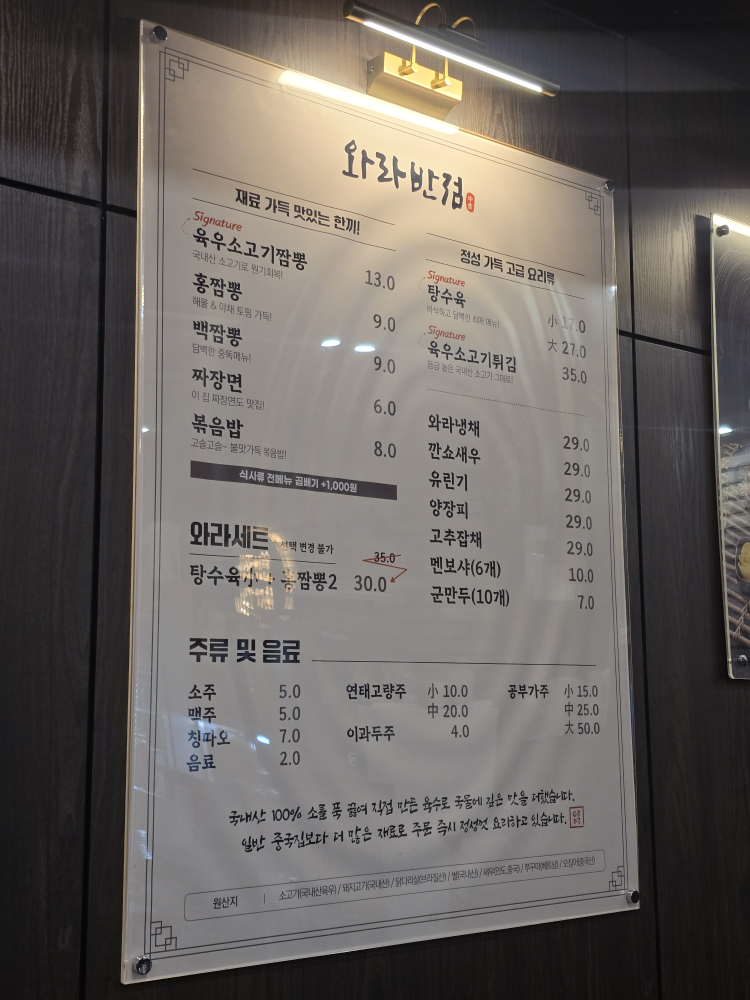 와라반점
재료 가득 맛있는 한끼!
Signature
육우소고기짬뽕 13.0
국내산 소고기로 원기회복!
홍짬뽕 9.0
해물 & 야채 토핑 가득!
백짬뽕 9.0
담백한 중독메뉴!
짜장면 6.0
이 집 짜장면도 맛집!
볶음밥 8.0
고슬고슬~ 불맛가득 볶음밥!
식사류 전메뉴 곱배기 +1,000원
와라세트 선택 변경 불가
35.0
탕수육小 + 홍짬뽕2 30.0
정성 가득 고급 요리류
Signature
탕수육 小 17.0
바삭하고 담백한 최애 메뉴!
大 27.0
Signature
육우소고기튀김 35.0
등급 높은 국내산 소고기 그대로!
와라냉채 29.0
깐쇼새우 29.0
유린기 29.0
양장피 29.0
고추잡채 29.0
멘보샤(6개) 10.0
군만두(10개) 7.0
주류 및 음료
소주 5.0
맥주 5.0
칭따오 7.0
음료 2.0
연태고량주 小 10.0
中 20.0
이과두주 4.0
공부가주 小 15.0
中 25.0
大 50.0
국내산 100% 소를 푹 끓여 직접 만든 육수로 국물에 깊은 맛을 더했습니다.
일반 중국집보다 더 많은 재료로 주문 즉시 정성껏 요리하고 있습니다.
원산지 소고기(국내산육우) / 돼지고기(국내산) / 닭다리살(브라질산) / 쌀(국내산) / 새우(인도,중국) / 쭈꾸미(베트남) / 오징어(중국산)